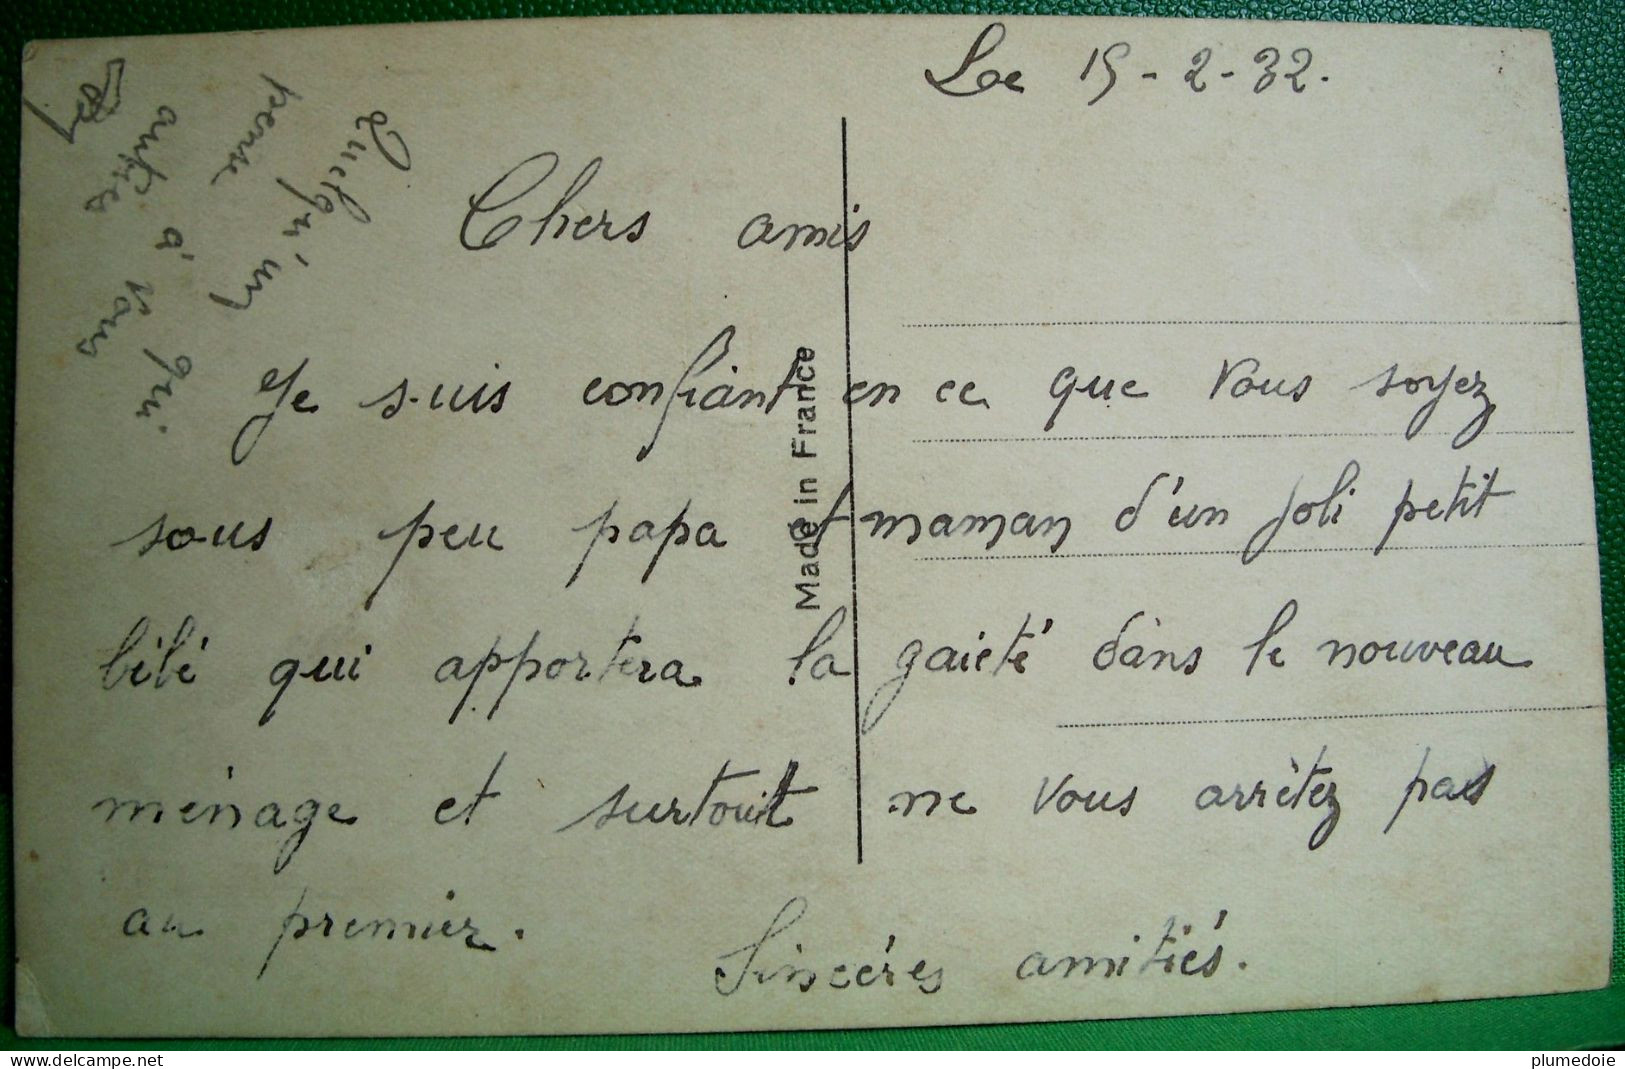 Le 15-2-32.
Chers amis
Je suis confiant en ce que vous soyez
sous peu papa et maman d'un joli petit
bébé qui apportera la gaieté dans le nouveau
ménage et surtout ne vous arrêtez pas
au premier.
Sincéres amitiés.
Quelqu'un qui
pense à vous
Made in France
delcampe.net
plumedoie